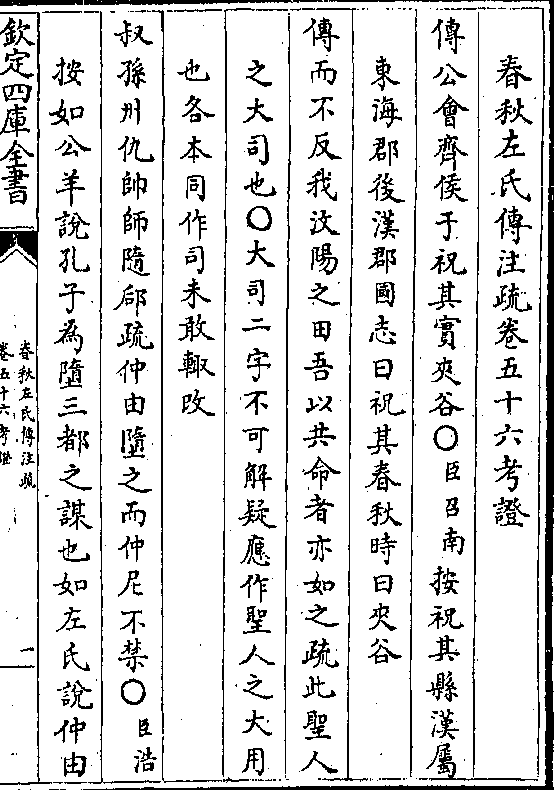 春秋左氏傳注疏卷五十六考證
傳公會齊侯于祝其實夾谷〇臣召南按祝其縣漢屬
東海郡後漢郡國志曰祝其春秋時曰夾谷
傳而不反我汶陽之田吾以共命者亦如之疏此聖人
之大司也〇大司二字不可解疑應作聖人之大用
也各本同作司未敢輙改
叔孫州仇帥師隨郈疏仲由隳之而仲尼不禁〇臣浩
按如公羊說孔子為隳三都之謀也如左氏說仲由
欽定四庫全書
春秋左氏傳注疏
卷五十六考證
一